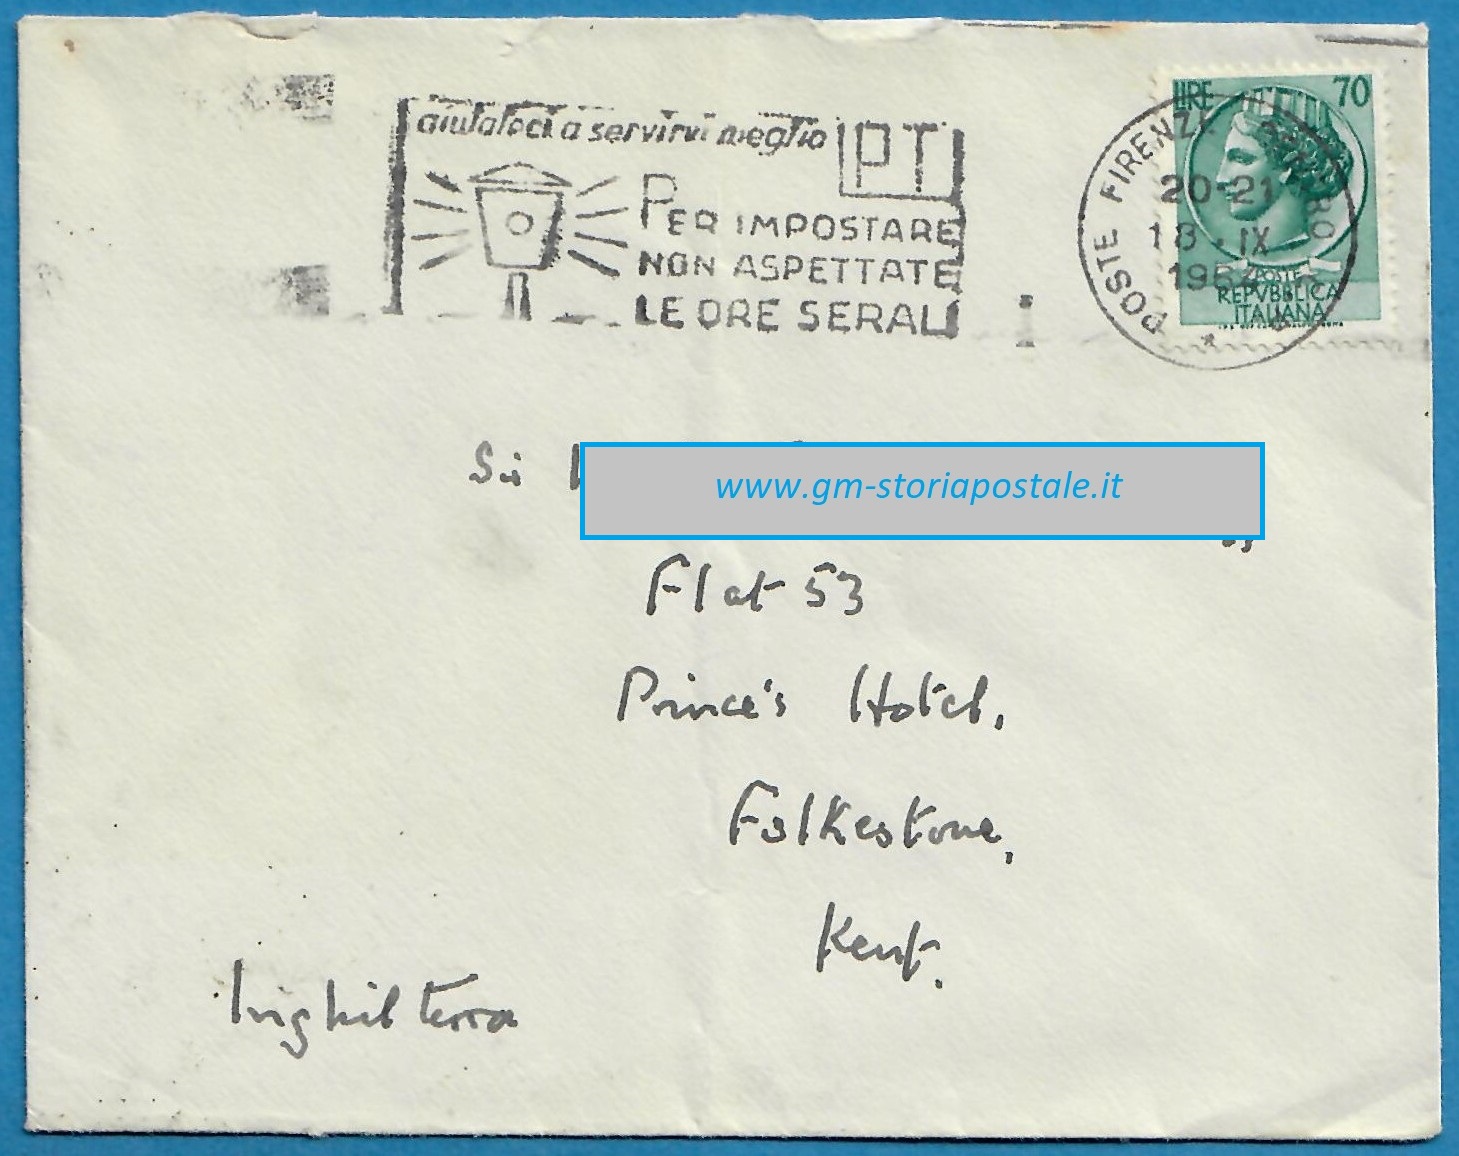 aiutateci a servirvi meglio
PT
PER IMPOSTARE
NON ASPETTATE
LE ORE SERALI
POSTE FIRENZE
20-21
18 · IX
LIRE 70
POSTE
REPVBBLICA
ITALIANA
Sir
www.gm-storiapostale.it
Flat 53
Prince's Hotel,
Folkestone,
Kent.
Inghilterra